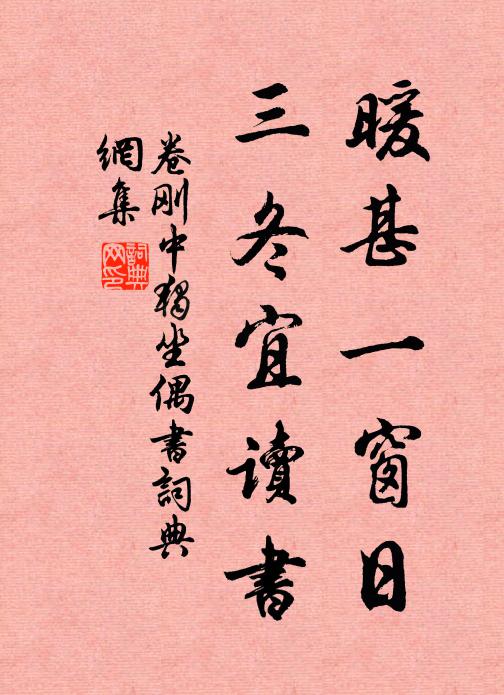 暖甚一窗日
三冬宜讀書
卷刚中独坐偶書詞典
網集
詞典
网印